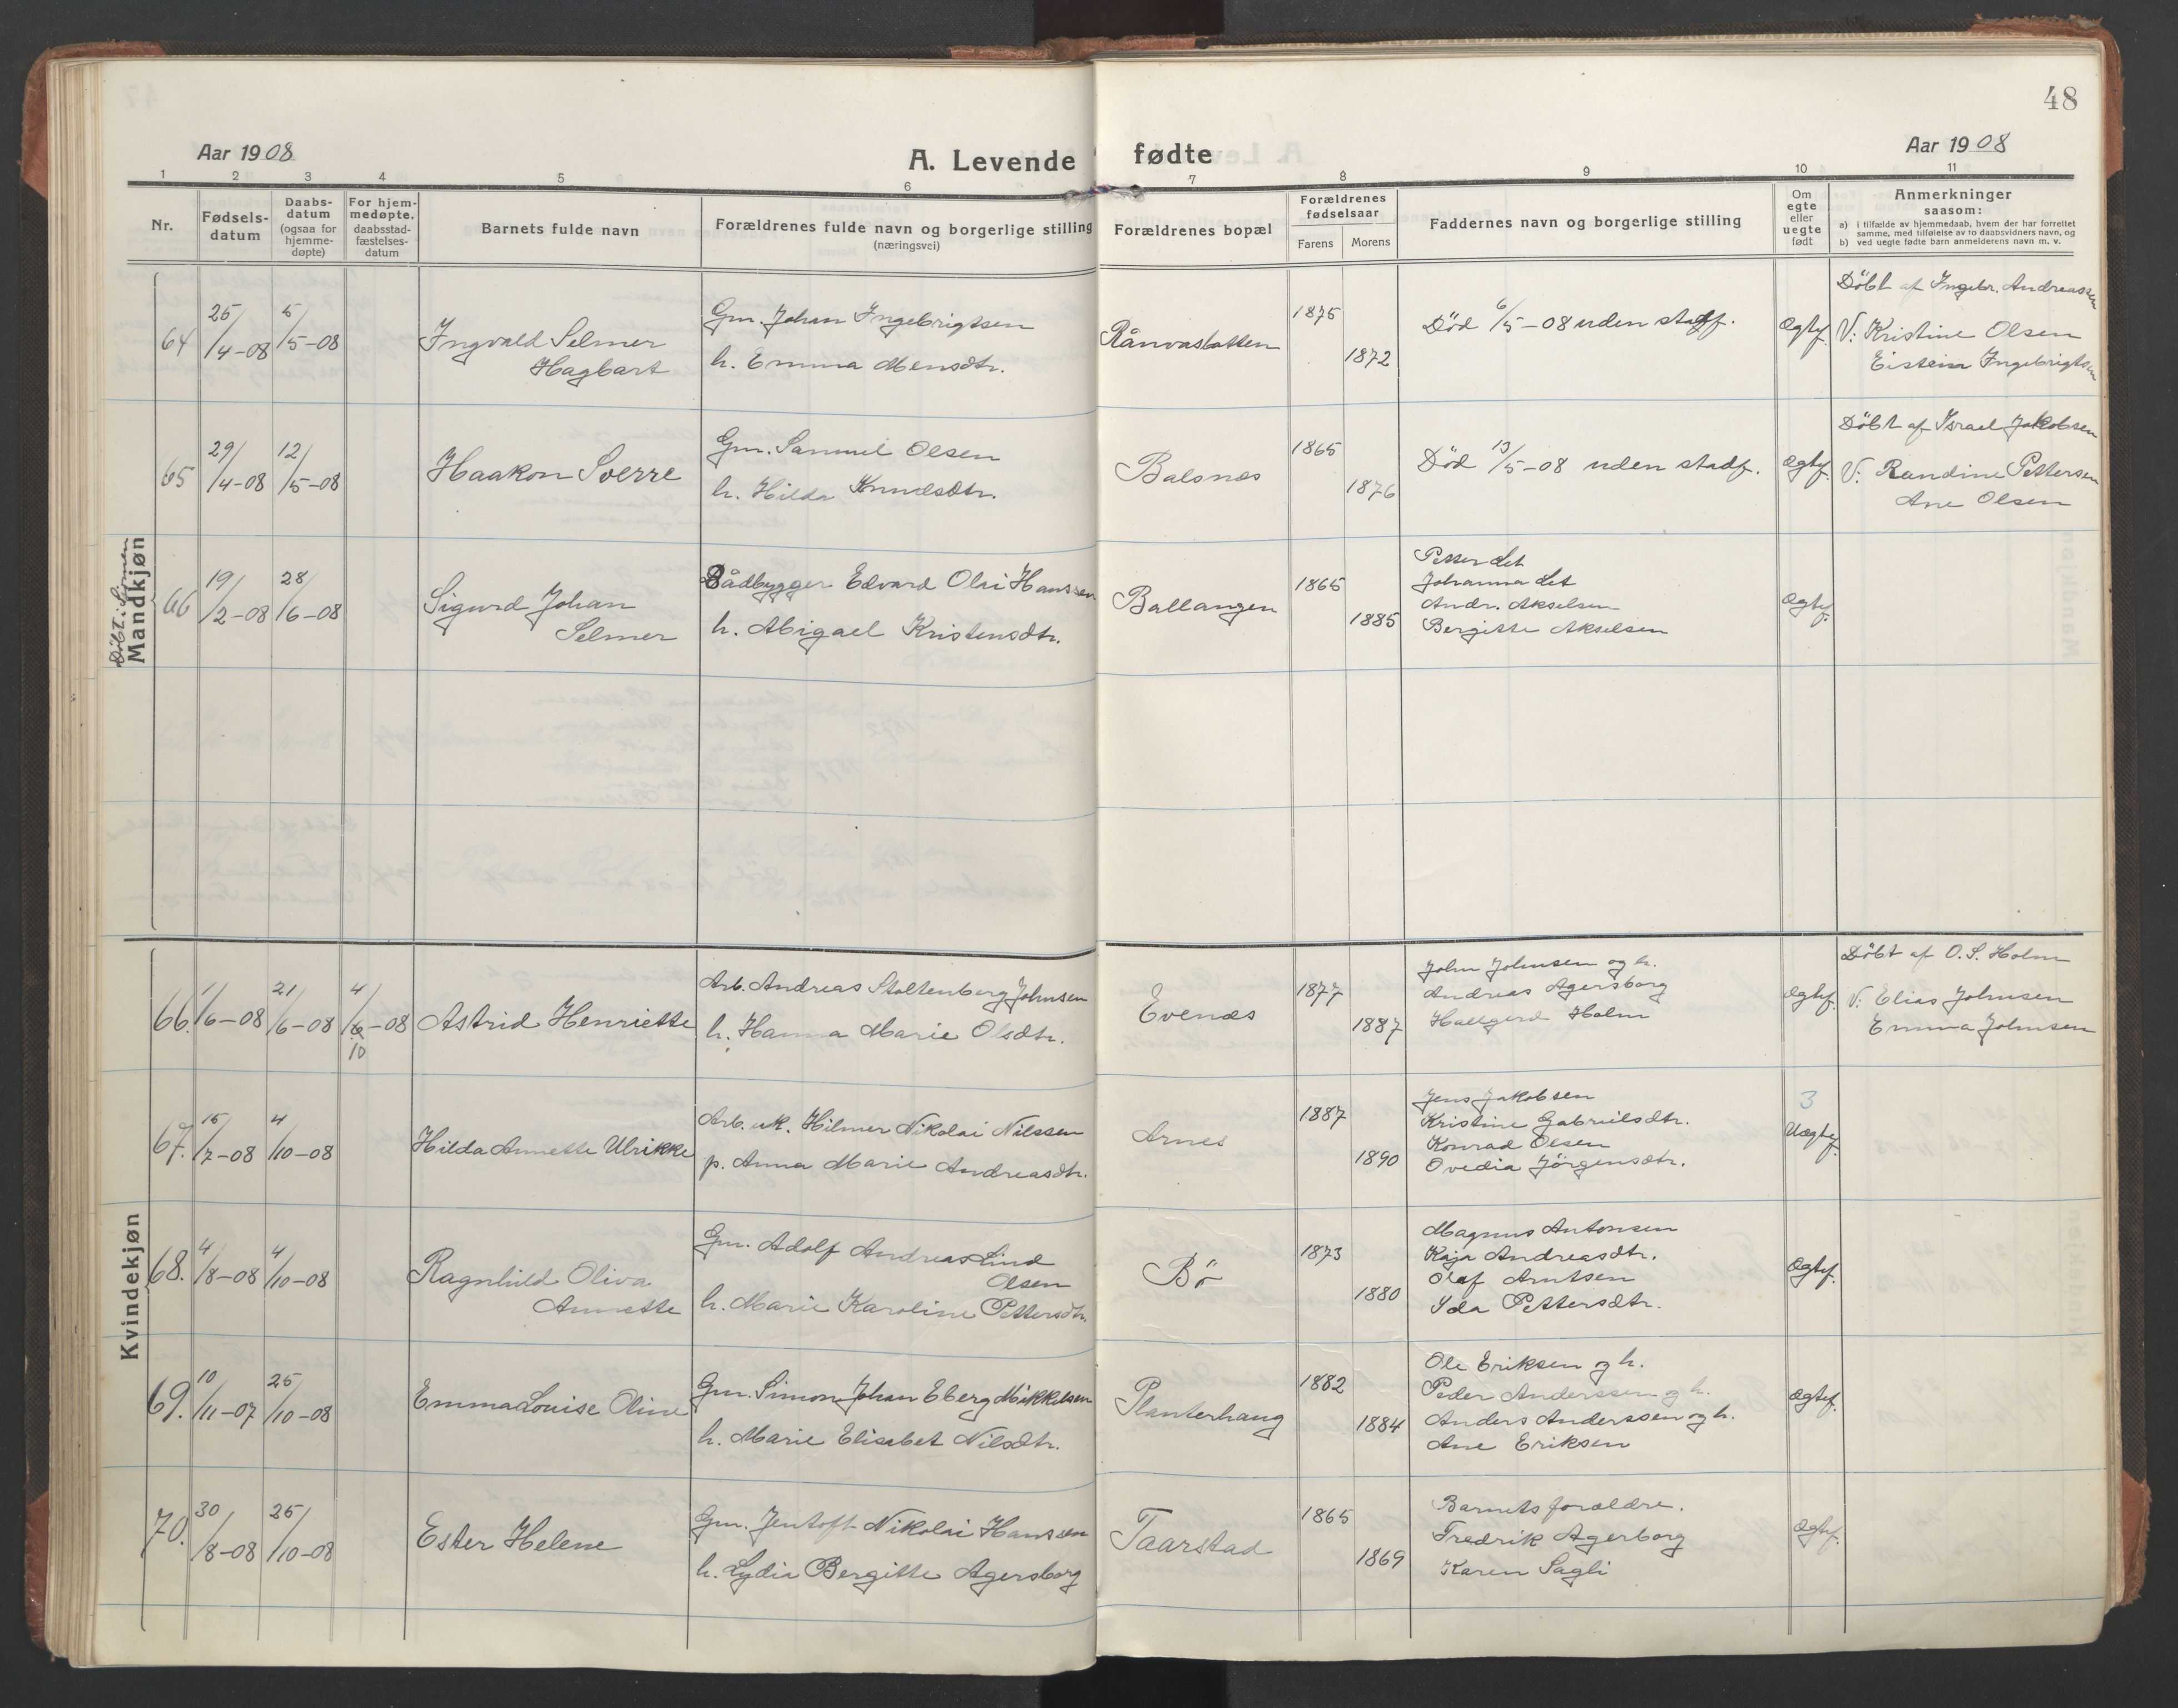 48
Aar 1908
A. Levende fødte
Aar 1908
1 2 3 4 5 6 7 8 9 10 11
Nr.
Fødsels-
datum
Daabs-
datum
(ogsaa for
hjemme-
døpte)
For hjem-
medøpte.
daabsstad-
fæstelses-
datum
Barnets fulde navn
Forældrenes fulde navn og borgerlige stilling
(næringsvei)
Forældrenes bopæl
Forældrenes
fødselsaar
Farens
Morens
Faddernes navn og borgerlige stilling
Om
egte
eller
uegte
født
Anmerkninger
saasom:
a) i tilfælde av hjemmedaab, hvem der har forrettet
samme, med tilføielse av to daabsvidners navn, og
b) ved uegte fødte barn anmelderens navn m. v.
Mandkjøn
64
25/4-08
5/5-08
Ingvald Selmer
Hagbart
Gm. Johan Ingebrigtsen
h. Emma Mensdtr.
1875
1872
Død 6/5-08 uden stadf.
Ægtef.
Döbt af Ingebr. Andreassen
V: Kristine Olsen
Eistein Ingebrigtsen
65
29/4-08
12/5-08
Haakon Sverre
Gm. Samuel Olsen
h. Hilda Knudsdtr.
Balsnæs
1865
1876
Död 13/5-08 uden stadf.
Ægtef.
Döbt af Israel Jakobsen
V: Randine Pettersen
Ane Olsen
Döbt i
66
19/2-08
28/6-08
Sigurd Johan
Selmer
Bådbygger Edvard Olai Hanssen
h. Abigael Kristensdtr.
Ballangen
1865
1885
Petter
Johanna
Andr. Akselsen
Bergitte Akselsen
Ægtef.
Kvindekjøn
66.
1/6-08
21/6-08
4/6-08
10
Astrid Henriette
Arb. Andreas Stoltenberg Johnsen
h. Hanna Marie Olsdtr.
Evenæs
1877
1887
John Johnsen og h.
Andreas Agersborg
Hallgerd Holm
Ægtef.
Döbt af O. S. Holm
V: Elias Johnsen
Emma Johnsen
67.
15/7-08
4/10-08
Hilda Annette Ulrikke
Arb. uk. Hilmer Nikolai Nilssen
p. Anna Marie Andreasdtr.
Arnes
1887
1890
Jens Jakobsen
Kristine Gabrielsdtr.
Konrad Olsen
Ovedia Jörgensdtr.
3
Uægtef.
68.
4/8-08
4/10-08
Ragnhild Oliva
Annette
Gm. Adolf Andreas Lind
Olsen
h. Marie Karoline Pettersdtr.
Bö
1873
1880
Magnus Antonsen
Kaja Andreasdtr.
Olaf Arntsen
Ida Pettersdtr.
Ægtef.
69.
10/11-07
25/10-08
Emma Louise Oline
Gm. Simon Johan Eberg Mikkelsen
h. Marie Elisabet Nilsdtr.
Planterhaug
1882
1884
Ole Eriksen og h.
Peder Anderssen og h.
Anders Anderssen og h.
Ane Eriksen
Ægtef.
70.
30/8-08
25/10-08
Ester Helene
Gm. Jentoft Nikolai Hanssen
h. Lydia Bergitte Agersborg
Taarstad
1865
1869
Barnets forældre.
Fredrik Agerborg
Karen Sagli
Ægtef.